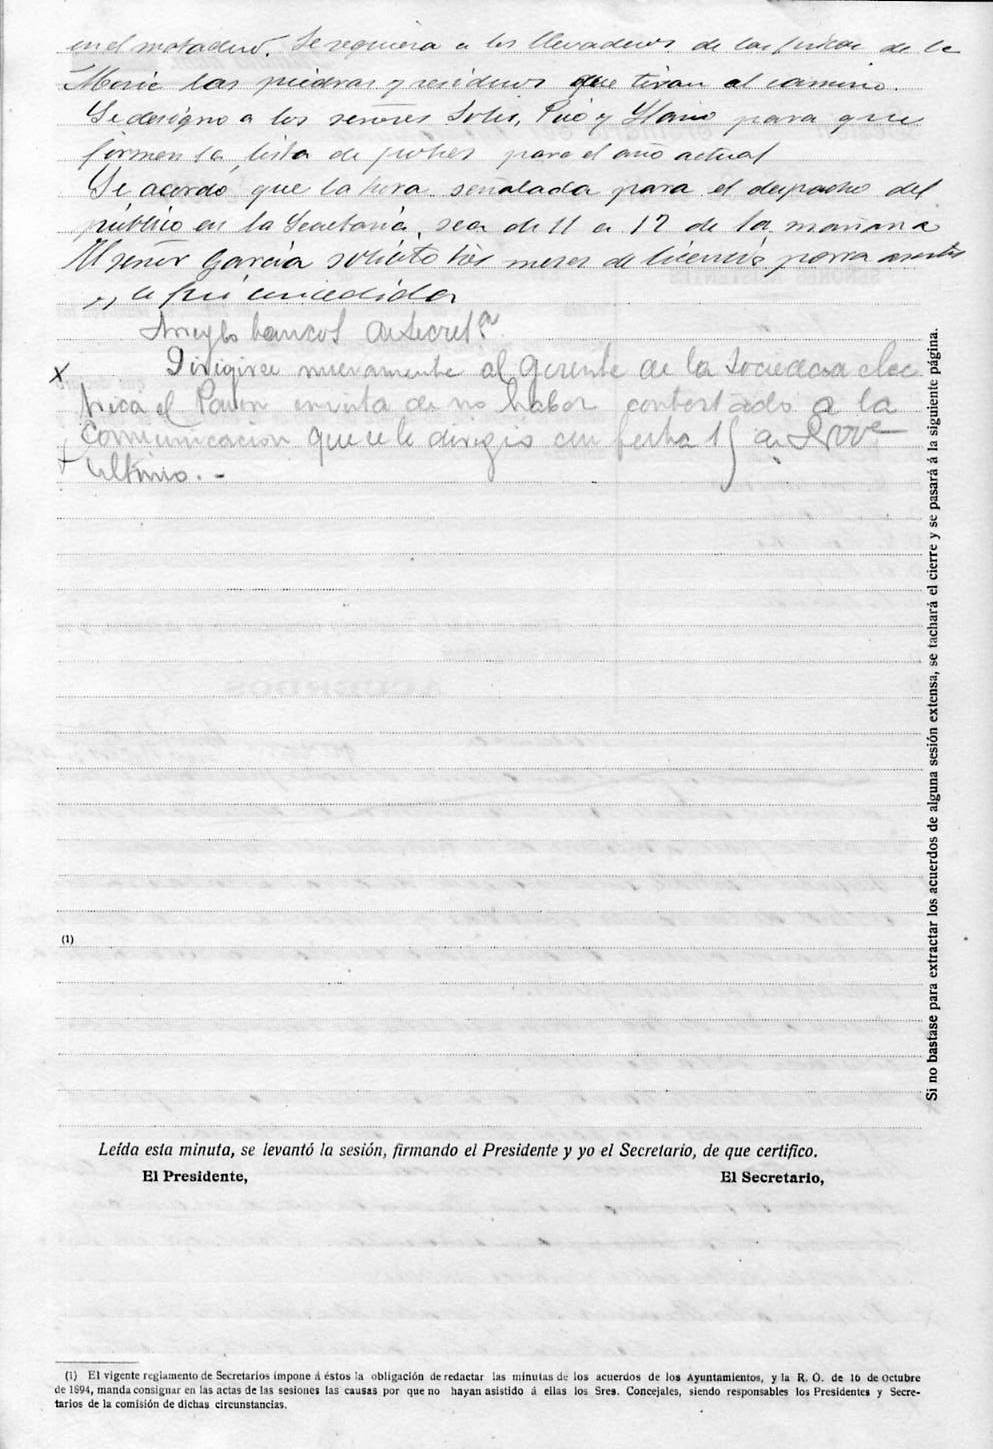 en el matadero. Se requiera a los llevadores de las fincas de la
las piedras y residuos que tiran al camino.
Se designo a los señores Solis, Pico y Llano para que
formen la lista de pobres para el año actual
Se acordó, que la hora señalada para el despacho del
público en la Secretaria, sea de 11 a 12 de la mañana
El señor Garcia solicitó tres meses de licencia para
le fué concedida
Arreglo bancos de Secretª
x Dirigirse nuevamente al Gerente de la Sociedad elec
trica el en vista de no haber contestado a la
comunicacion que se le dirigio con fecha 15 de
ultimo. -
(1)
Si no bastase para extractar los acuerdos de alguna sesión extensa, se tachará el cierre y se pasará á la siguiente página.
Leída esta minuta, se levantó la sesión, firmando el Presidente y yo el Secretario, de que certifico.
El Presidente, El Secretario,
(1) El vigente reglamento de Secretarios impone á éstos la obligación de redactar las minutas de los acuerdos de los Ayuntamientos, y la R. O. de 16 de Octubre
de 1894, manda consignar en las actas de las sesiones las causas por que no hayan asistido á ellas los Sres. Concejales, siendo responsables los Presidentes y Secre-
tarios de la comisión de dichas circunstancias.